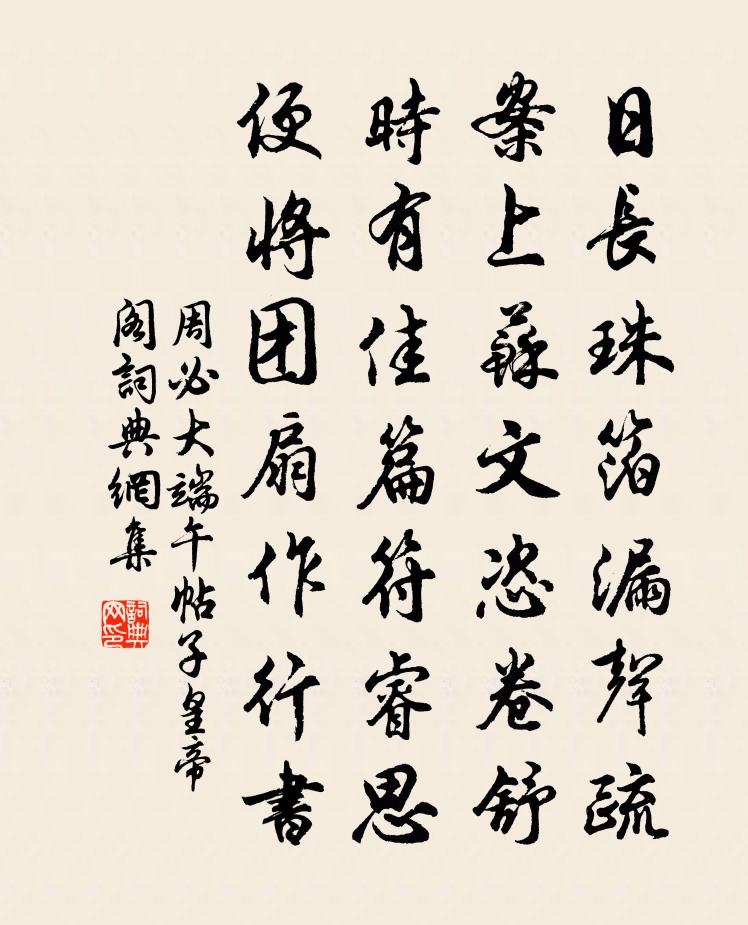 日長珠箔漏聲疏
案上蘇文恣卷舒
時有佳篇符睿思
便將团扇作行書
周必大端午帖子皇帝
阁詞典網集
詞典网印